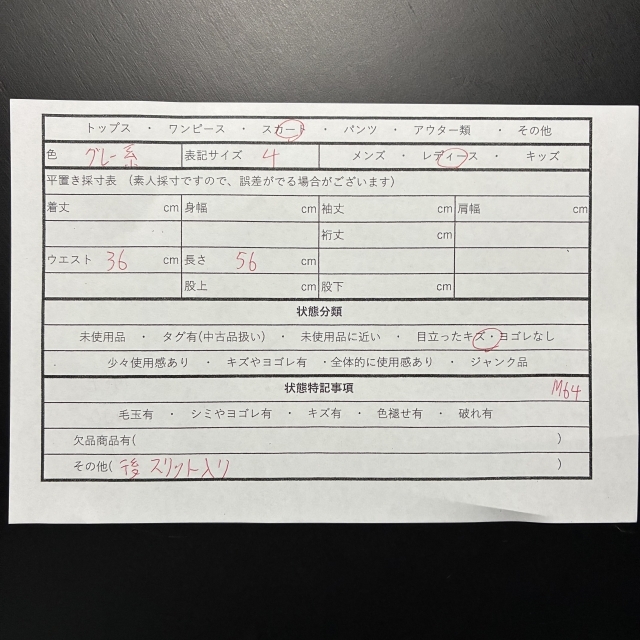 トップス ・ ワンピース ・ スカート ・ パンツ ・ アウター類 ・ その他
色 グレー系 表記サイズ 4 メンズ ・ レディース ・ キッズ
平置き採寸表 (素人採寸ですので、誤差がでる場合がございます)
着丈 cm 身幅 cm 袖丈 cm 肩幅 cm
裄丈 cm
ウエスト 36 cm 長さ 56 cm
股上 cm 股下 cm
状態分類
未使用品 ・ タグ有(中古品扱い) ・ 未使用品に近い ・ 目立ったキズ・ヨゴレなし
少々使用感あり ・ キズやヨゴレ有 ・全体的に使用感あり ・ ジャンク品
状態特記事項 M64
毛玉有 ・ シミやヨゴレ有 ・ キズ有 ・ 色褪せ有 ・ 破れ有
欠品商品有( )
その他( 後 スリット入り )